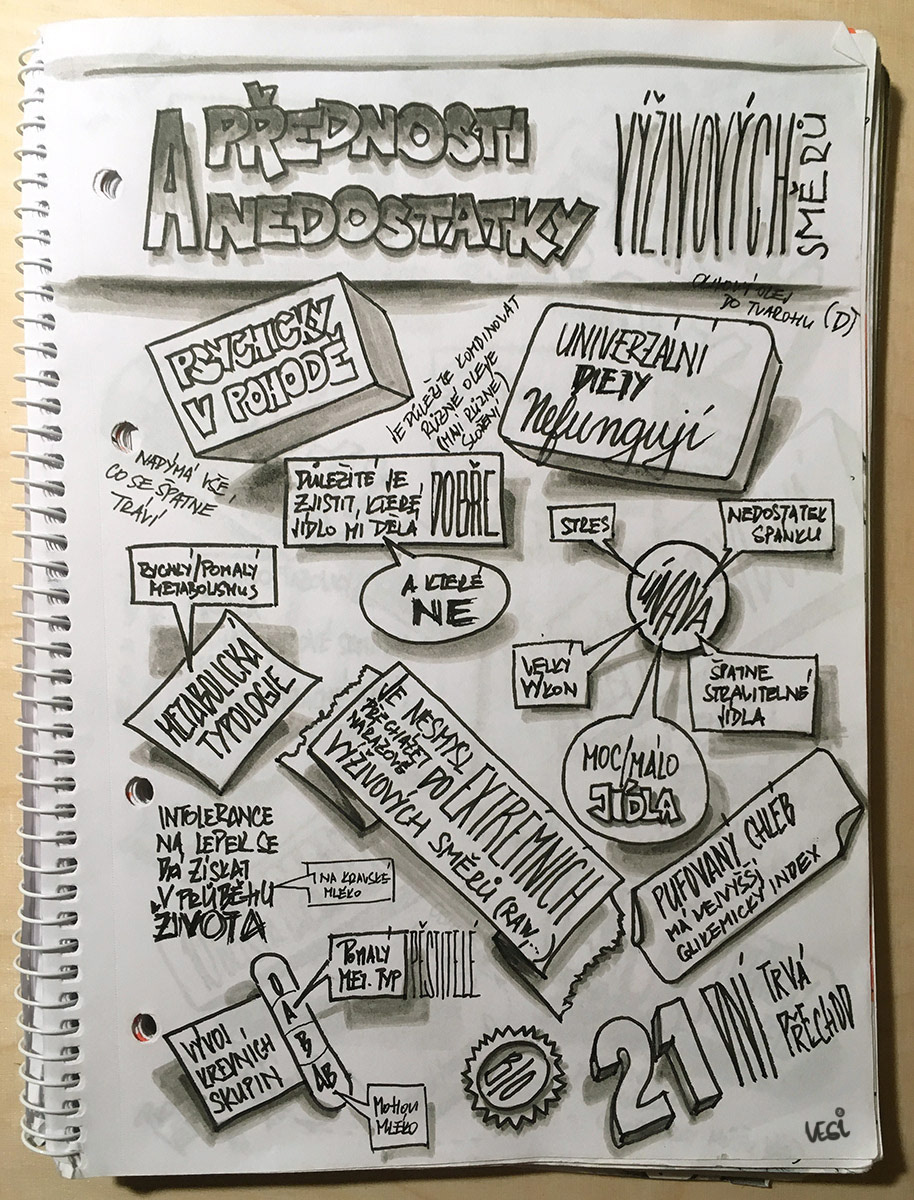 PŘEDNOSTI
A NEDOSTATKY
VÝŽIVOVÝCH
SMĚRŮ
OLEJ
DO TVAROHU (D)
PSYCHICKY
V POHODĚ
JE DŮLEŽITÉ KOMBINOVAT
RŮZNÉ OLEJE
(MAJÍ RŮZNÉ
SLOŽENÍ)
UNIVERZÁLNÍ
DIETY
Nefungují
NADÝMÁ VŠE,
CO SE ŠPATNE
TRÁVÍ
DŮLEŽITÉ JE
ZJISTIT, KTERÉ
JÍDLO MI DĚLÁ
DOBŘE
A KTERÉ
NE
STRES
NEDOSTATEK
SPÁNKU
ÚNAVA
VELKÝ
VÝKON
ŠPATNE
STRAVITELNÉ
JÍDLA
MOC/MÁLO
JÍDLA
RYCHLÝ/POMALÝ
METABOLISMUS
METABOLICKÁ
TYPOLOGIE
JE NESMYSL
PŘECHÁZET
NÁRAZOVĚ
DO EXTRÉMNÍCH
VÝŽIVOVÝCH SMĚRŮ (RAW...
PUFOVANÝ CHLÉB
MÁ NEJVYŠŠÍ
GLIKEMICKÝ INDEX
INTOLERANCE
NA LEPEK SE
DÁ ZÍSKAT
V PRŮBĚHU
ŽIVOTA
I NA KRAVSKÉ
MLÉKO
POMALÝ
MET. TYP
PĚSTITELÉ
VÝVOJ
KREVNÍCH
SKUPIN
0
A
B
AB
MOHOU
MLÉKO
BIO
21 DNÍ
TRVÁ
PŘECHOD
VESI